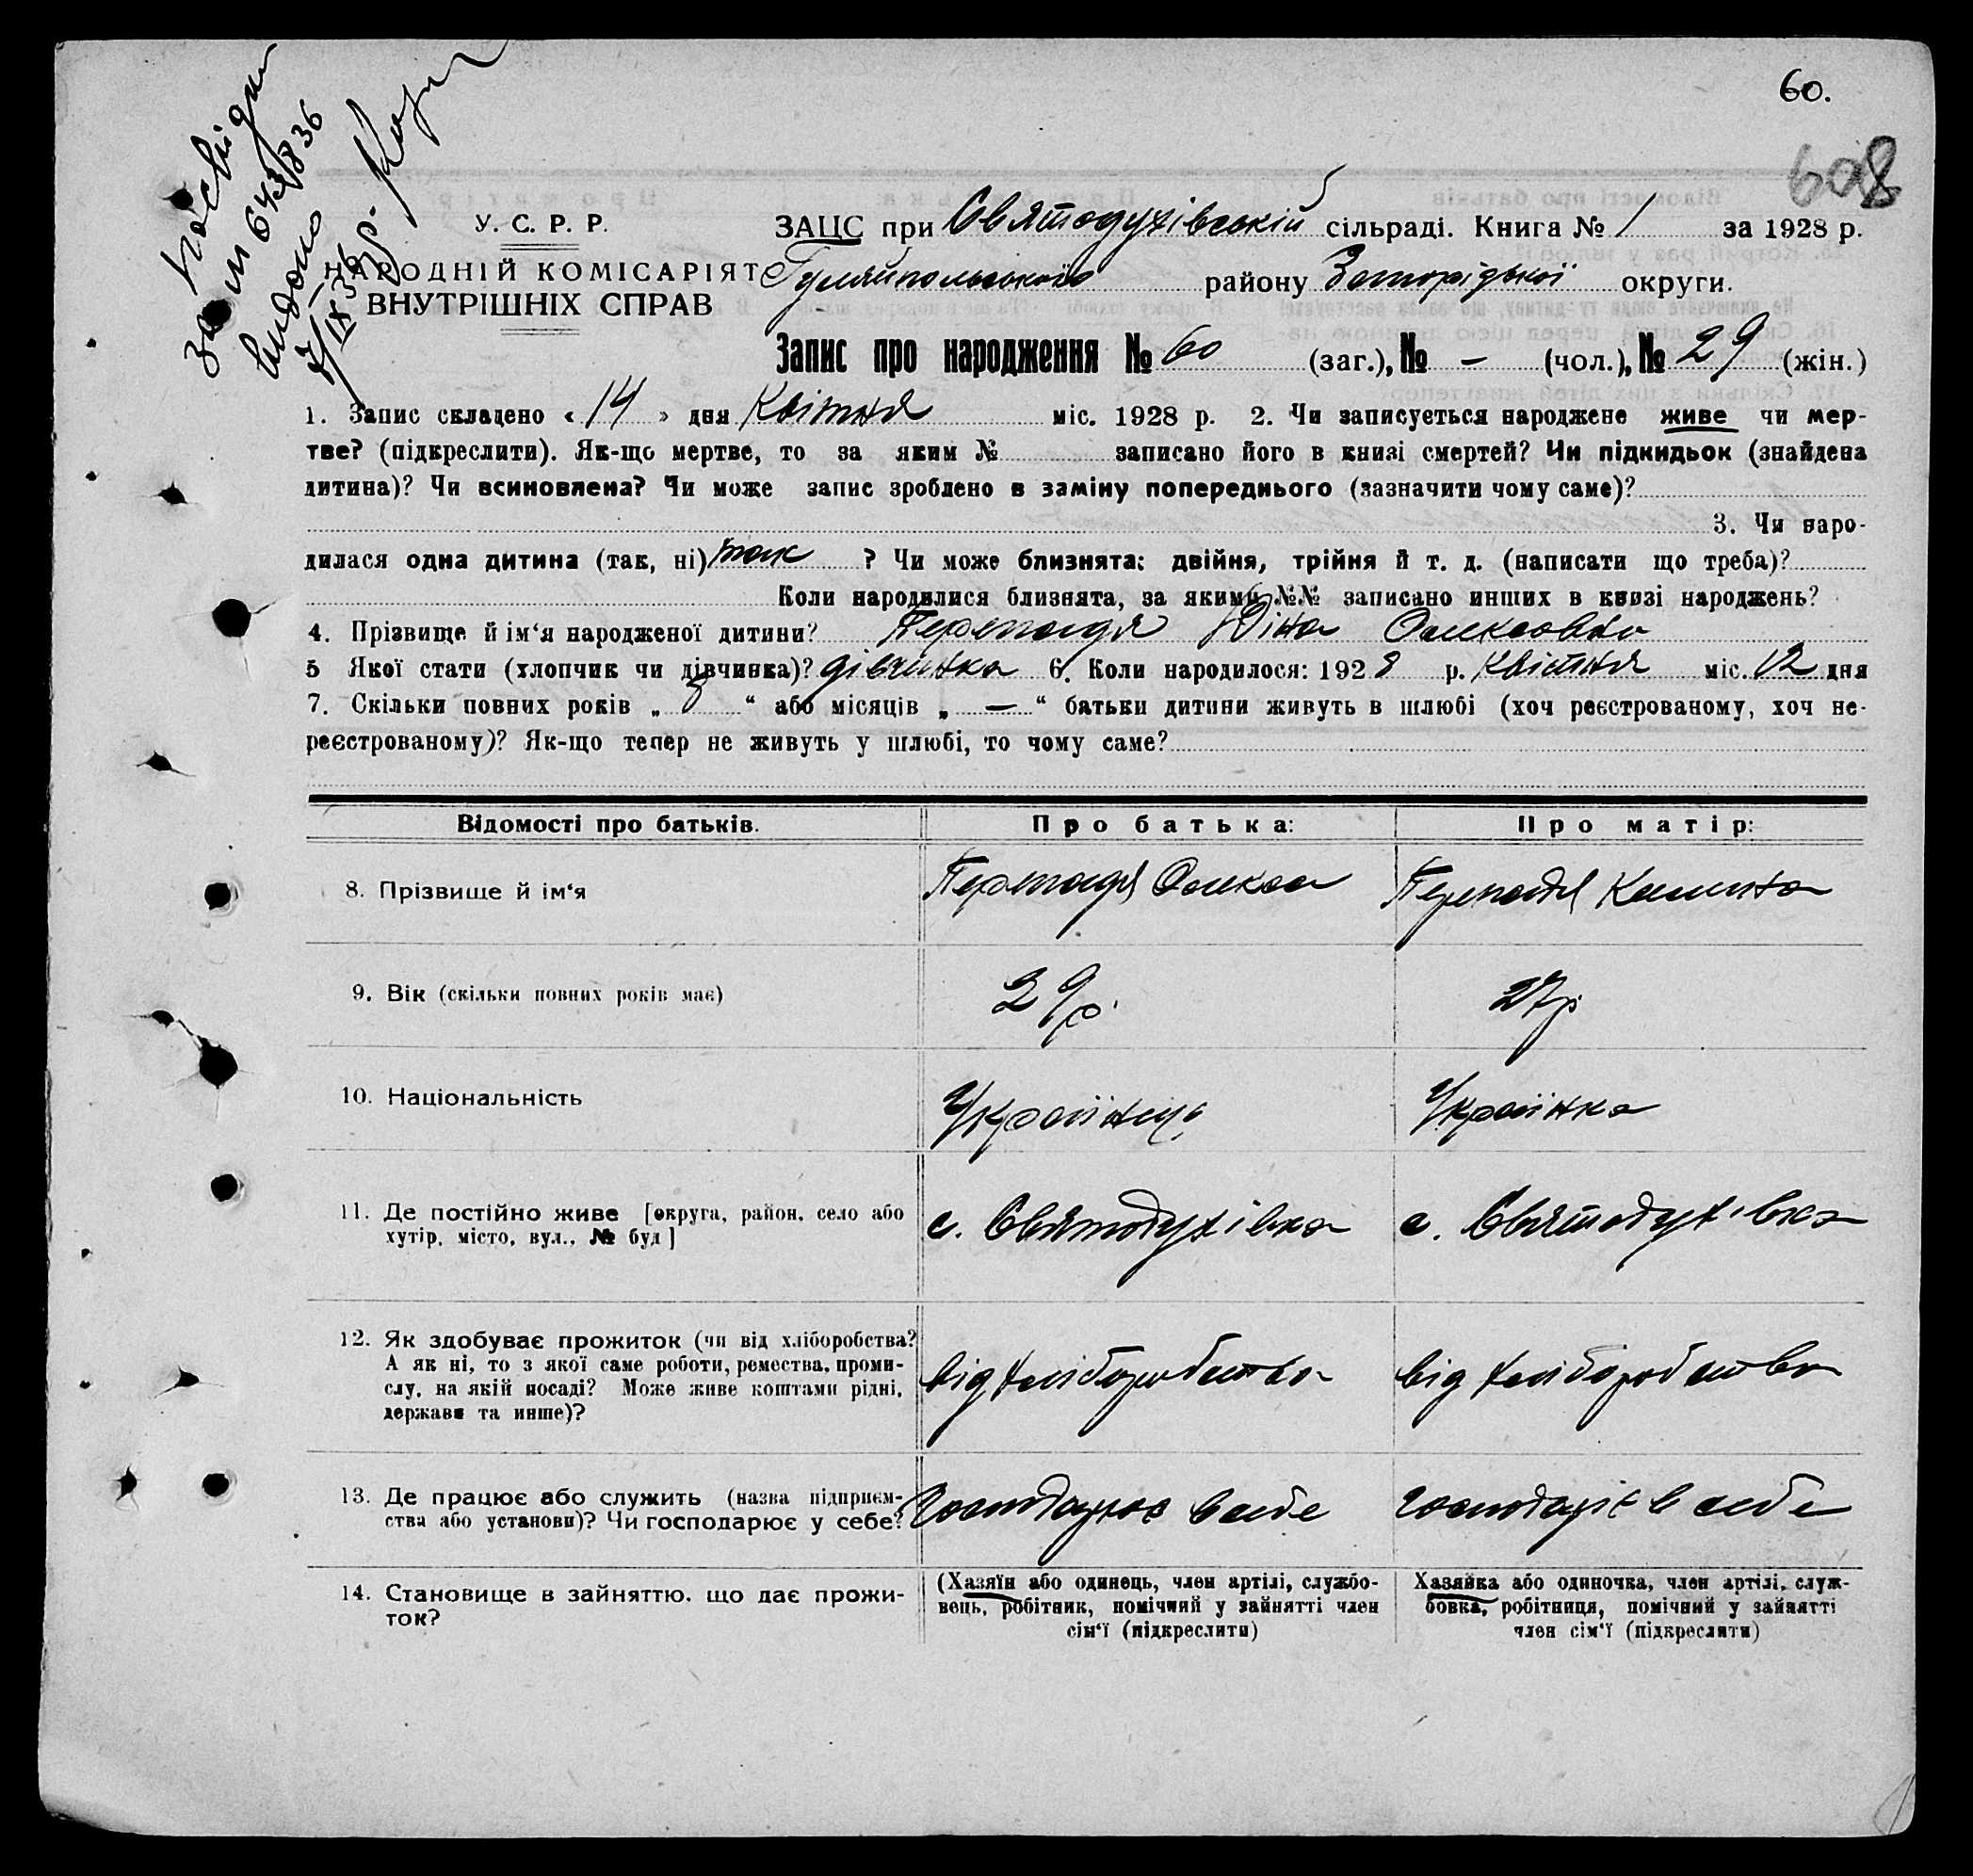 60.
608
посвідку
за № 643/836
видано
7/IX 36 р.
У. С. Р. Р.
НАРОДНІЙ КОМІСАРІЯТ
ВНУТРІШНІХ СПРАВ
ЗАЦС при Святодухівській сільраді. Книга № 1 за 1928 р.
Гуляйпольського району Запорізької округи.
Запис про народження № 60 (заг.), № – (чол.), № 29 (жін.)
1. Запис складено « 14 » дня Квітня міс. 1928 р. 2. Чи записується народжене живе чи мер-
тве? (підкреслити). Як-що мертве, то за яким № записано його в книзі смертей? Чи підкидьок (знайдена
дитина)? Чи всиновлена? Чи може запис зроблено в заміну попереднього (зазначити чому саме)?
3. Чи наро-
дилася одна дитина (так, ні) так ? Чи може близнята: двійня, трійня й т. д. (написати що треба)?
Коли народилися близнята, за якими №№ записано инших в книзі народжень?
4. Прізвище й ім'я народженої дитини? Перепадя Діна Олексовна
5 Якої стати (хлопчик чи дівчинка)? дівчинка 6. Коли народилося: 1928 р. Квітня міс. 12 дня
7. Скільки повних років „ 8 “ або місяців „ — “ батьки дитини живуть в шлюбі (хоч реєстрованому, хоч не-
реєстрованому)? Як-що тепер не живуть у шлюбі, то чому саме?
Відомості про батьків. Про батька: Про матір:
8. Прізвище й ім'я Перепадя Олекса Перепадя Калина
9. Вік (скільки повних років має) 29 р. 27 р
10. Національність Українець Українка
11. Де постійно живе [округа, район, село або
хутір, місто, вул., № буд ] с. Святодухівка с. Святодухівка
12. Як здобуває прожиток (чи від хліборобства?
А як ні, то з якої саме роботи, ремества, проми-
слу, на якій посаді? Може живе коштами рідні,
держави та инше)? від хліборобства від хліборобства
13. Де працює або служить (назва підприєм-
ства або установи)? Чи господарює у себе? Господарює в себе господаріє в себе
14. Становище в зайняттю, що дає прожи-
ток?
(Хазяїн або одинець, член артілі, службо-
вець, робітник, помічний у зайнятті член
сім'ї (підкреслити)
Хазяйка або одиночка, член артілі, служ-
бовка, робітниця, помічний у зайнятті
член сім'ї (підкреслити)